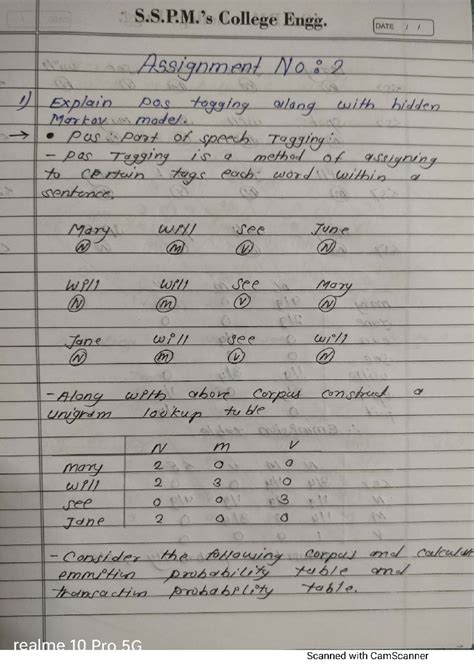 S.S.P.M.'s College Engg.
DATE / /
Assignment No : 2
1) Explain pos tagging along with hidden
Markov model.
→ • Pos : Part of speech Tagging :
- Pos Tagging is a method of assigning
to certain tags each word within a
sentence.
Mary will see June
N M V N
Will will see Mary
N M V N
Jane will see will
N M V N
- Along with above corpus construct a
unigram lookup table
N M V
mary 2 0 0
will 2 3 0
see 0 0 3
Jane 2 0 0
- Consider the following corpus and calculate
emmition probability table and
transaction probability table.
realme 10 Pro 5G
Scanned with CamScanner